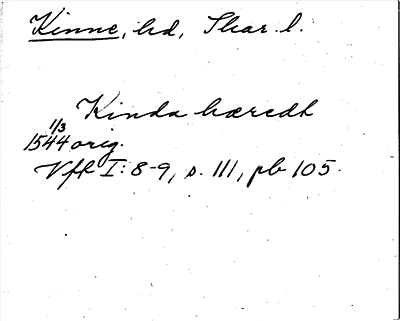 Kinne, hd, Skar. l.
Kinda hæredh
1/3
1544 orig.
Vfk I: 8-9, s. 111, pb 105.